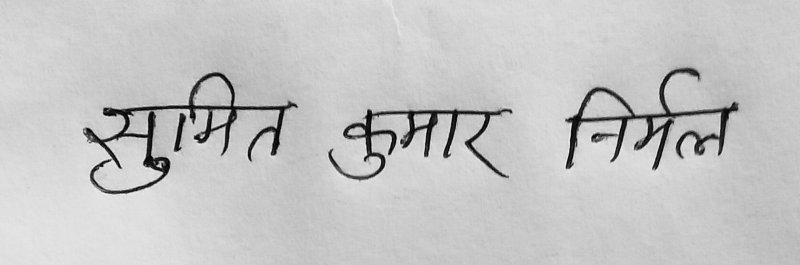 सुमित कुमार निर्मल